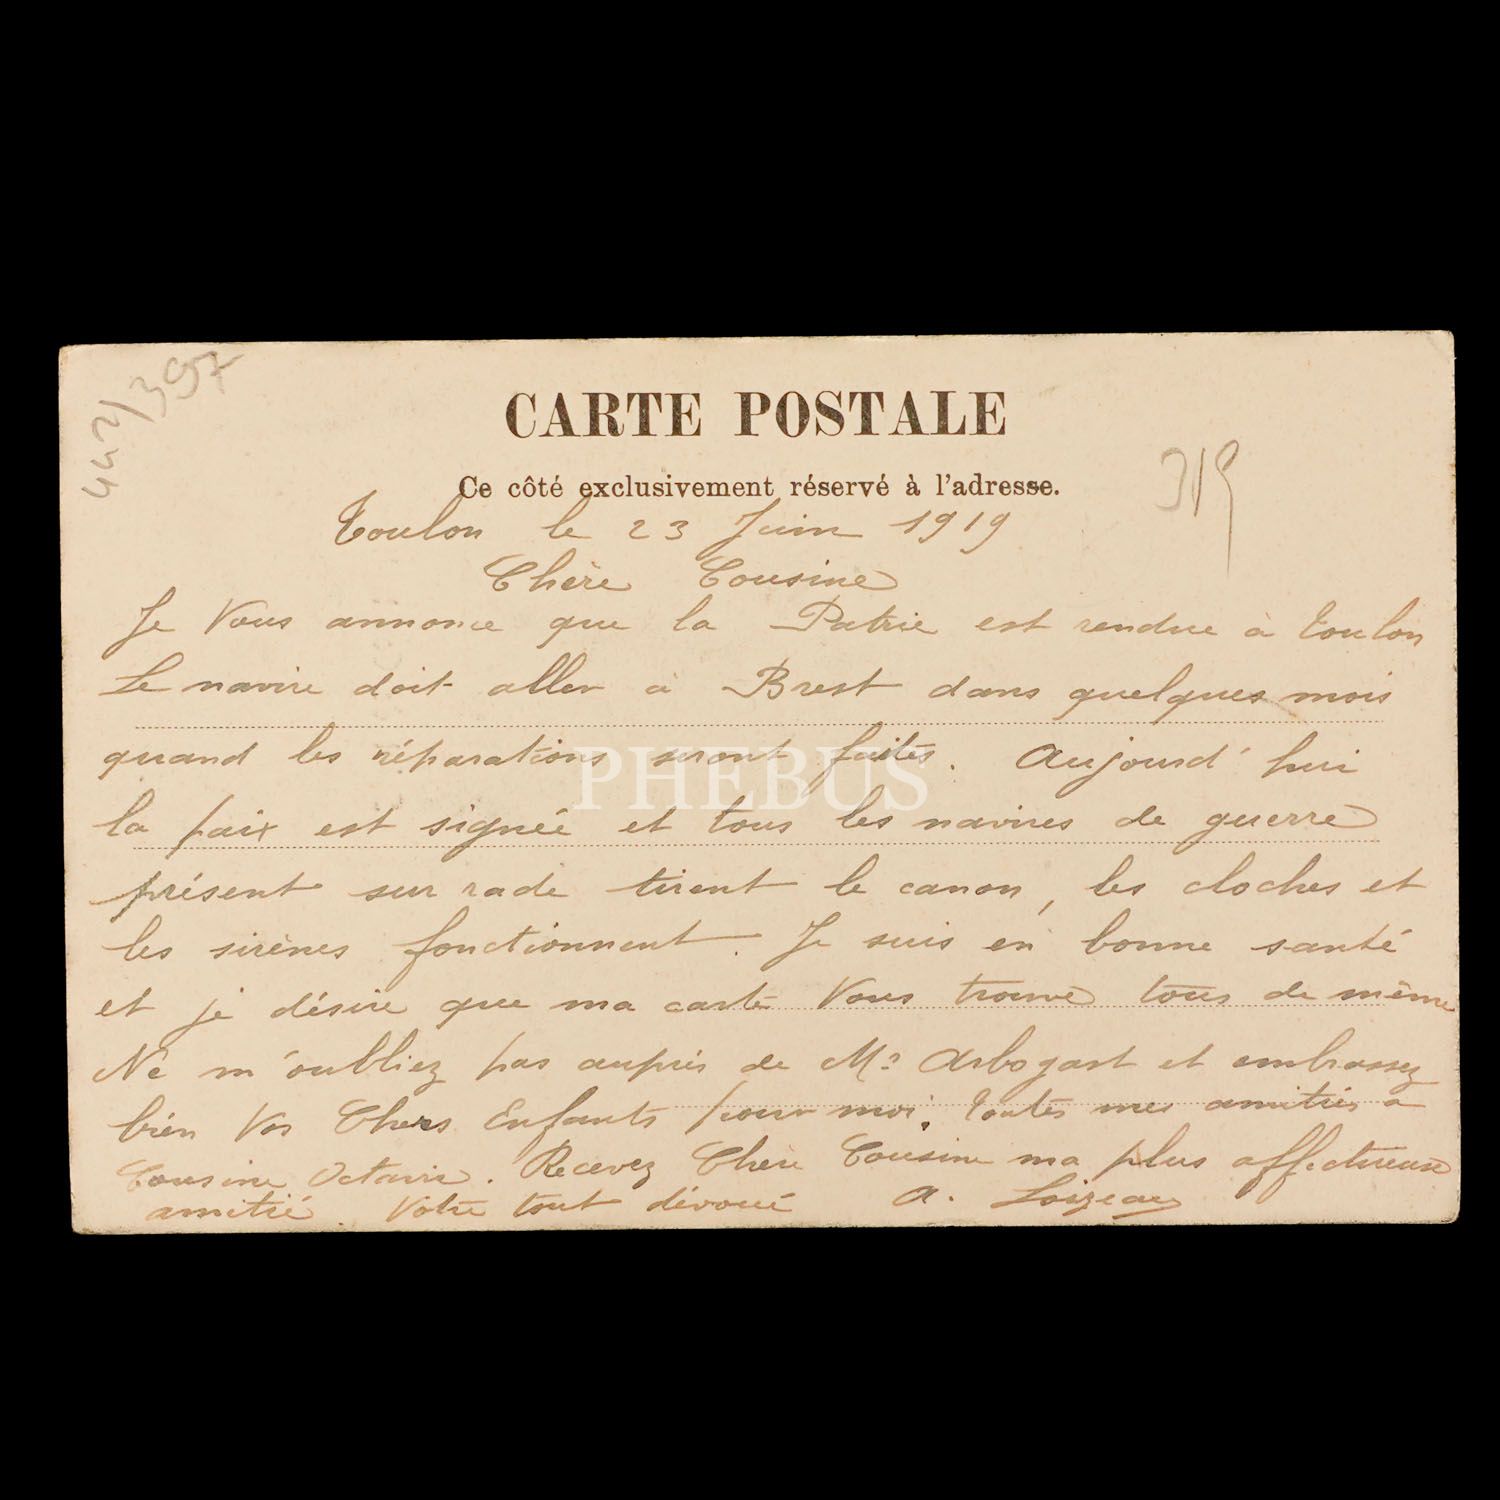 442/397
CARTE POSTALE
319
Ce côté exclusivement réservé à l'adresse.
Toulon le 23 Juin 1919
Chère Cousine
Je Vous annonce que la Patrie est rendue à Toulon
Le navire doit aller a Brest dans quelques mois
quand les réparations seront faites. Aujourd'hui
PHEBUS
la paix est signée et tous les navires de guerre
présent sur rade tirent le canon, les cloches et
les sirènes fonctionnent. Je suis en bonne santé
et je désire que ma carte Vous trouve tous de même
Ne m'oubliez pas auprès de Mr Arbogast et embrassez
bien Vos Chers Enfants pour moi. Toutes mes amitiés a
Cousine Octavie. Recevez Chère Cousine ma plus affectueuse
amitié. Votre tout dévoué A. Loizeau